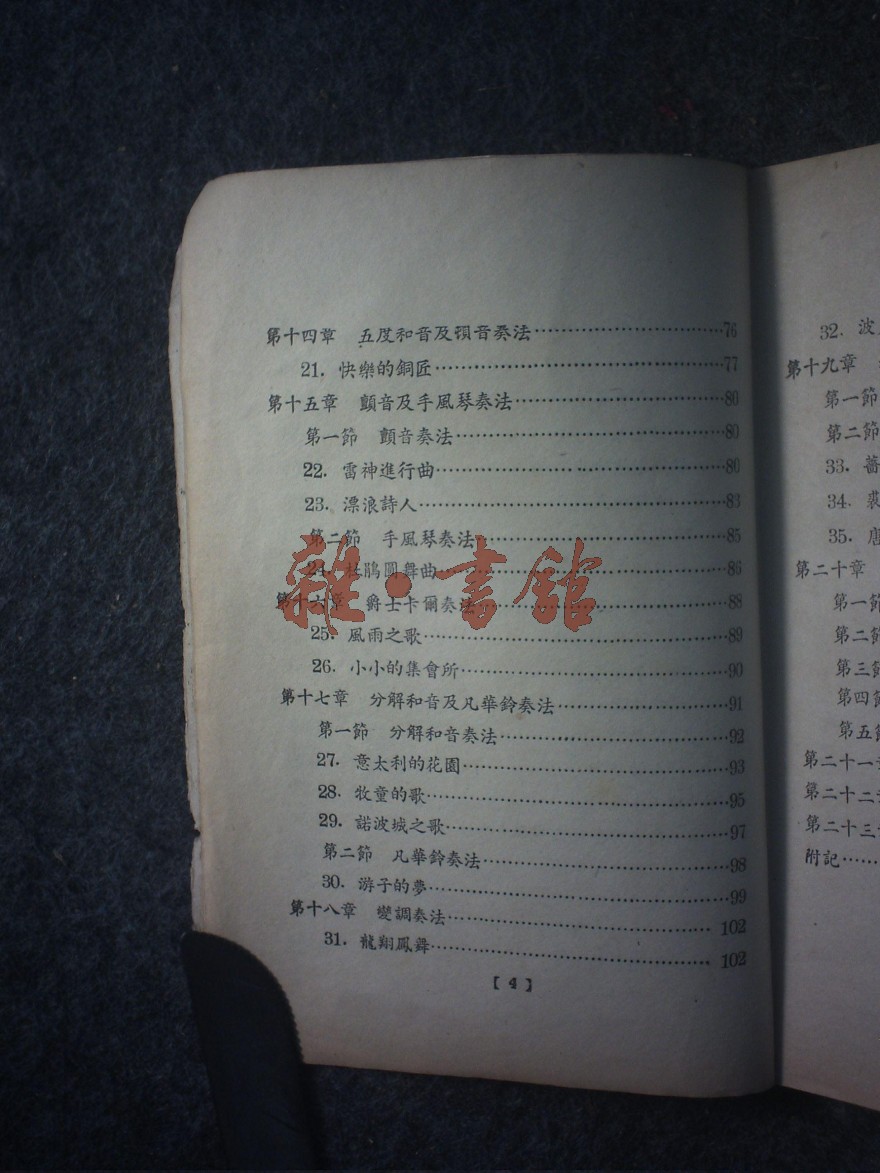 第十四章 五度和音及頓音奏法························76
21. 快樂的銅匠························77
第十五章 顫音及手風琴奏法························80
第一節 顫音奏法························80
22. 雷神進行曲························80
23. 漂浪詩人························83
第二節 手風琴奏法························85
24. 杜鵑圓舞曲························86
第十六章 爵士卡爾奏法························88
25. 風雨之歌························89
26. 小小的集會所························90
第十七章 分解和音及凡華鈴奏法························91
第一節 分解和音奏法························92
27. 意太利的花園························93
28. 牧童的歌························95
29. 諾波城之歌························97
第二節 凡華鈴奏法························98
30. 游子的夢························99
第十八章 變調奏法························102
31. 龍翔鳳舞························102
[4]
雜·書館
32. 波
第十九章
第一節
第二節
33. 薔
34. 裁
35.
第二十章
第一節
第二節
第三節
第四節
第五節
第二十一章
第二十二章
第二十三
附記······